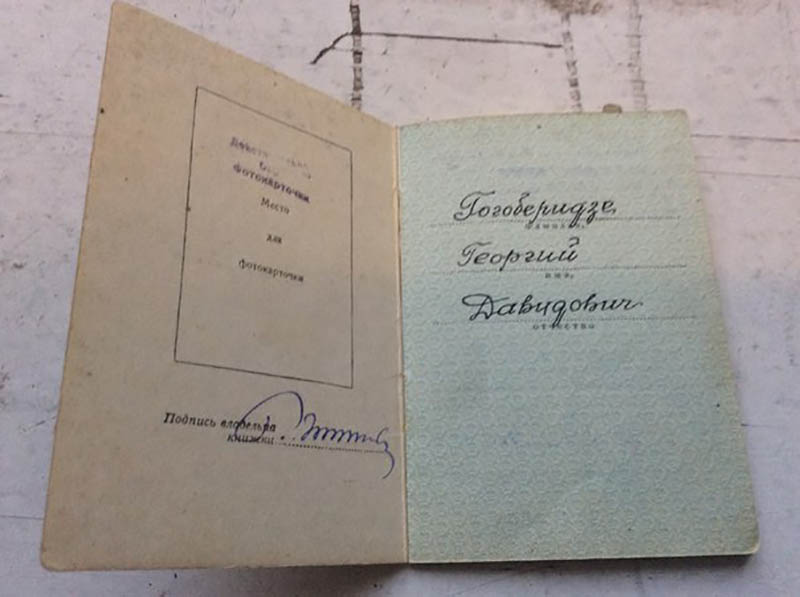 фотокарточки
Место
для
фотокарточки
Подпись владельца
книжки
Гогоберидзе
фамилия,
Георгий
имя,
Давидович
отчество